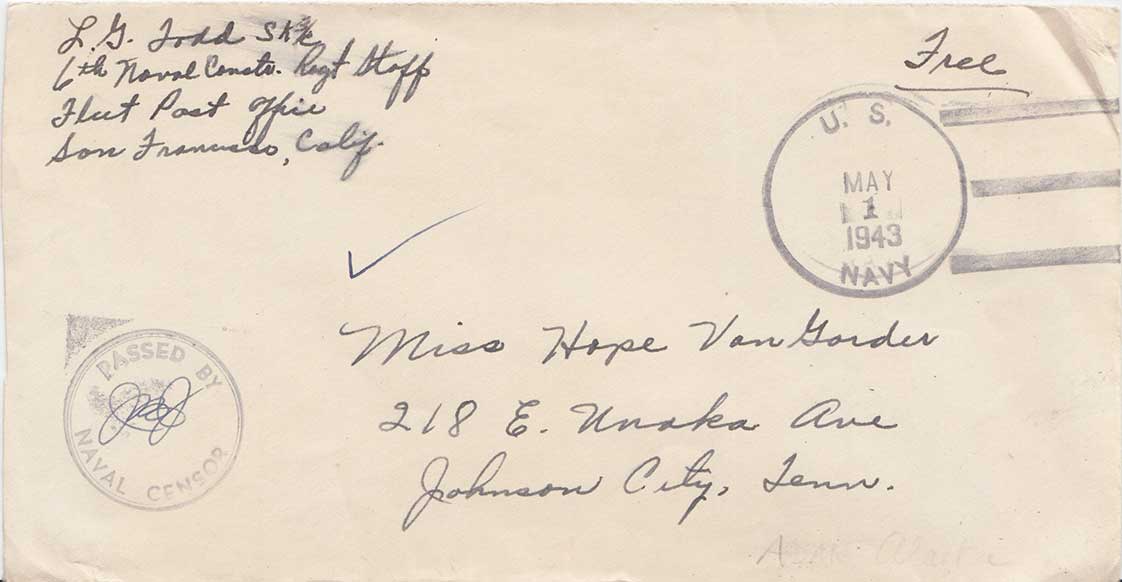 L. G. Todd SK
6th Naval Constr. Regt Staff
Fleet Post Office
San Francisco, Calif.
Free
U. S.
MAY
1
1943
NAVY
PASSED BY
NAVAL CENSOR
Miss Hope VanGorder
218 E. Unaka Ave
Johnson City, Tenn.